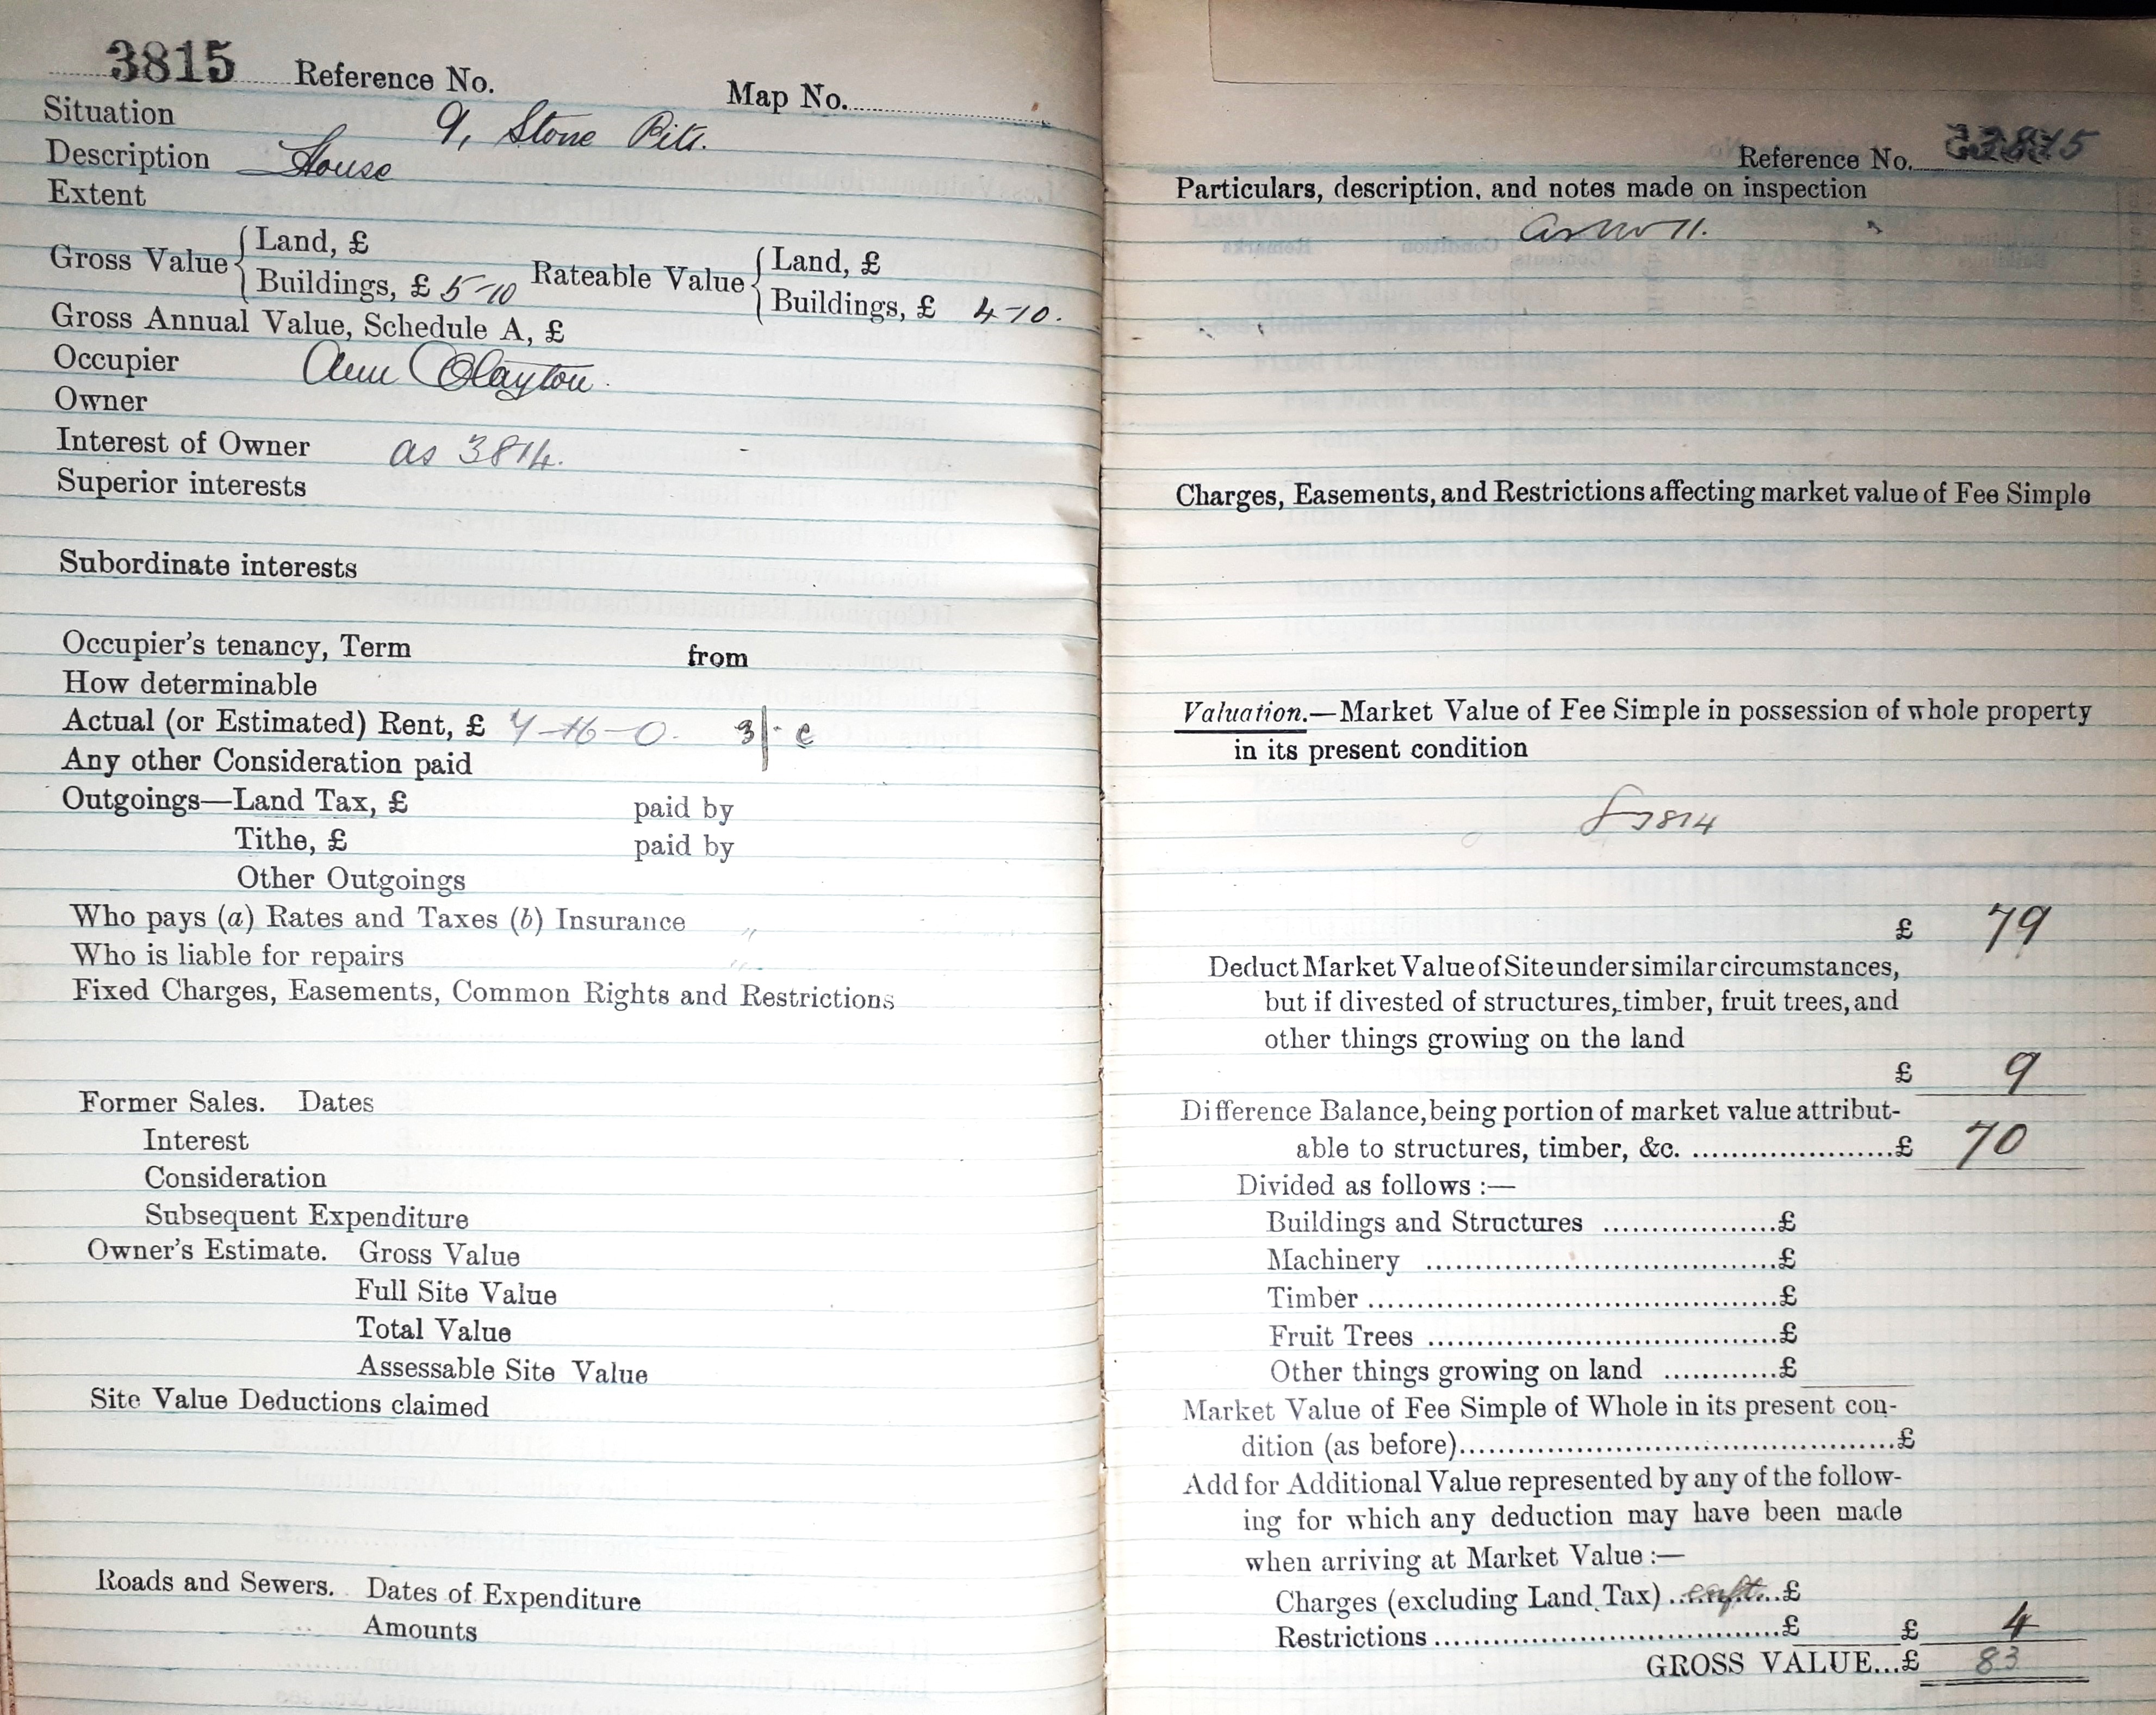 3815 Reference No. Map No.
Situation 9, Stone Pits.
Description House
Extent
Gross Value { Land, £ Rateable Value { Land, £
Buildings, £ 5-10 Buildings, £ 4-10.
Gross Annual Value, Schedule A, £
Occupier Ann Clayton.
Owner
Interest of Owner as 3814.
Superior interests
Subordinate interests
Occupier's tenancy, Term from
How determinable
Actual (or Estimated) Rent, £ 7-16-0. 3/-
Any other Consideration paid
Outgoings—Land Tax, £ paid by
Tithe, £ paid by
Other Outgoings
Who pays (a) Rates and Taxes (b) Insurance "
Who is liable for repairs "
Fixed Charges, Easements, Common Rights and Restrictions
Former Sales. Dates
Interest
Consideration
Subsequent Expenditure
Owner's Estimate. Gross Value
Full Site Value
Total Value
Assessable Site Value
Site Value Deductions claimed
Roads and Sewers. Dates of Expenditure
Amounts
Reference No. 3815
Particulars, description, and notes made on inspection
as No 11.
Charges, Easements, and Restrictions affecting market value of Fee Simple
Valuation.—Market Value of Fee Simple in possession of whole property
in its present condition
3814
£ 79
Deduct Market Value of Site under similar circumstances,
but if divested of structures, timber, fruit trees, and
other things growing on the land
£ 9
Difference Balance, being portion of market value attribut-
able to structures, timber, &c. ....................£ 70
Divided as follows :—
Buildings and Structures .................£
Machinery ..................................£
Timber .......................................£
Fruit Trees ..................................£
Other things growing on land ............£
Market Value of Fee Simple of Whole in its present con-
dition (as before)...........................................£
Add for Additional Value represented by any of the follow-
ing for which any deduction may have been made
when arriving at Market Value :—
Charges (excluding Land Tax) .......£
Restrictions .................................£ £ 4
GROSS VALUE...£ 83